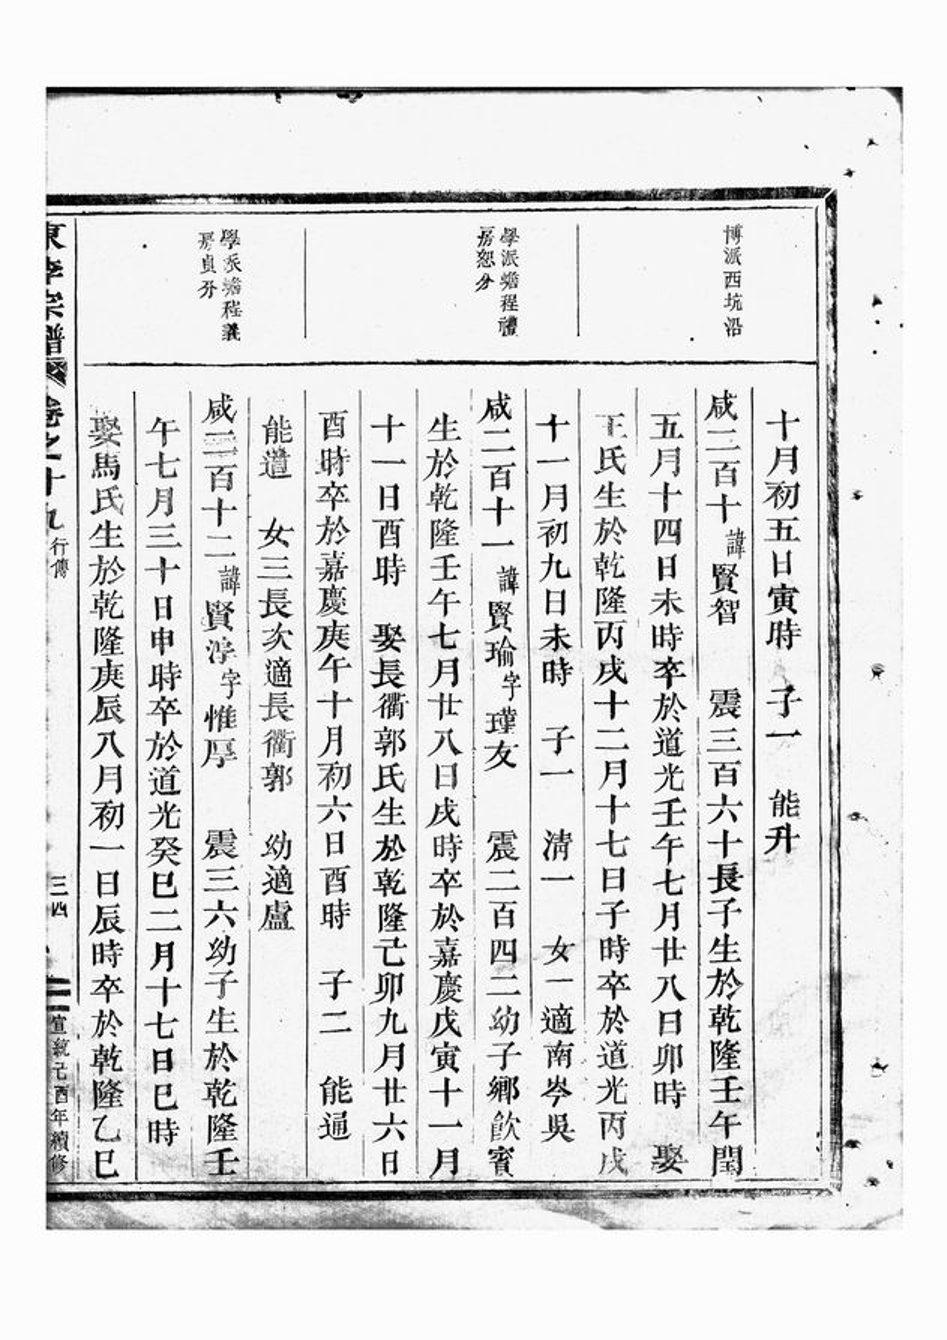 博派西坑沿
學派蟾程禮
房恕分
學派蟾程義
房貞分
十月初五日寅時 子一 能升
咸二百十諱賢智 震三百六十長子生於乾隆壬午閏
五月十四日未時卒於道光壬午七月廿八日卯時 娶
王氏生於乾隆丙戌十二月十七日子時卒於道光丙戌
十一月初九日未時 子一 淸一 女一適南岑吳
咸二百十一諱賢瑜字瑾友 震二百四二幼子鄉飲賓
生於乾隆壬午七月廿八日戌時卒於嘉慶戊寅十一月
十一日酉時 娶長衢郭氏生於乾隆己卯九月廿六日
酉時卒於嘉慶庚午十月初六日酉時 子二 能逼
能遣 女三長次適長衢郭 幼適盧
咸二百十二諱賢淳字惟厚 震三六幼子生於乾隆壬
午七月三十日申時卒於道光癸巳二月十七日巳時
娶馬氏生於乾隆庚辰八月初一日辰時卒於乾隆乙巳
東李宗譜 卷之十九 行傳 三四 宣統己酉年續修